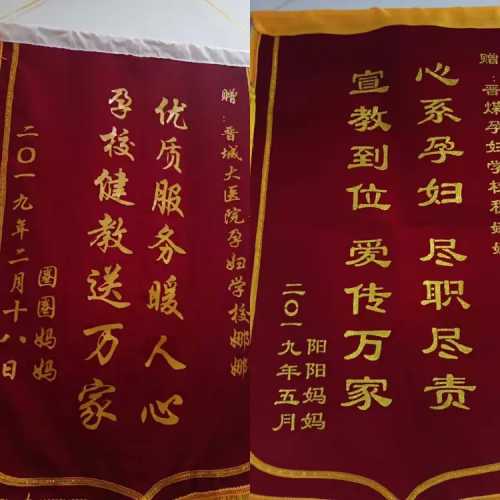 赠：晋城大医院孕妇学校娜娜
优质服务暖人心
孕校健教送万家
圆圆妈妈
二〇一九年二月十八日
赠：晋煤孕妇学校
心系孕妇 尽职尽责
宣教到位 爱传万家
阳阳妈妈
二〇一九年五月